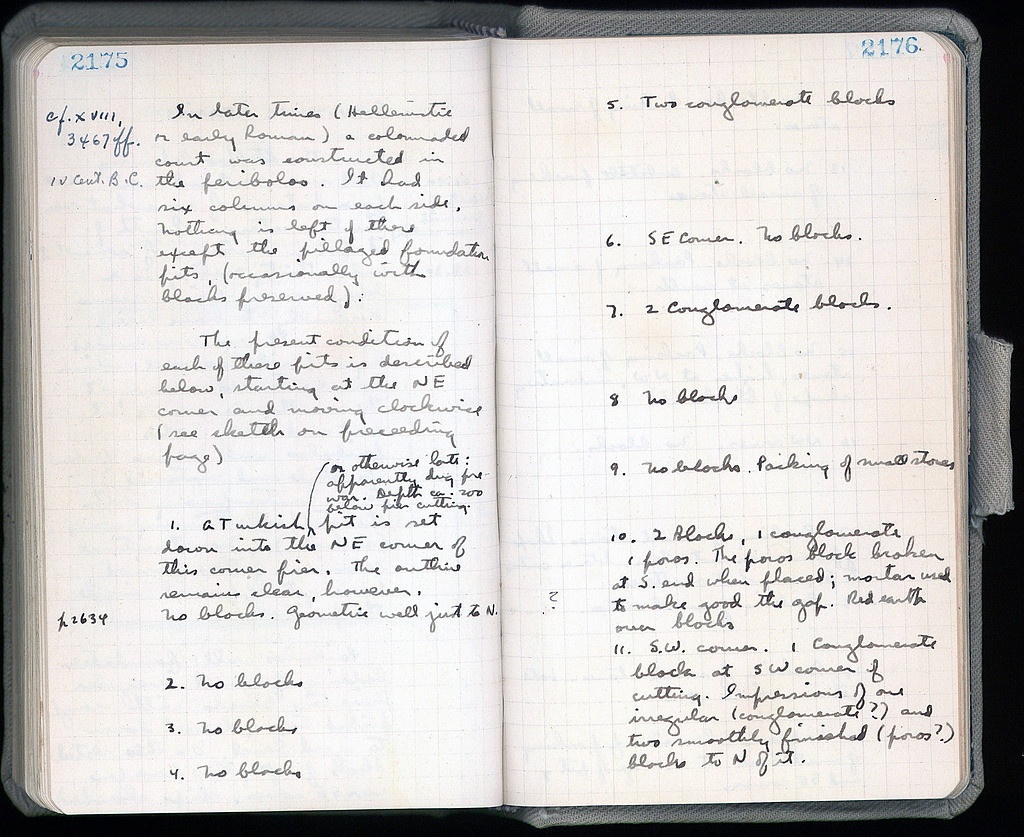 2175
cf. XVIII,
3467 ff.
IV Cent. B.C.
In later times (Hellenistic
or early Roman) a colonnaded
court was constructed in
the peribolos. It had
six columns on each side.
Nothing is left of these
except the pillaged foundation
pits, (occasionally with
blocks preserved):
The present condition of
each of these pits is described
below, starting at the NE
corner and moving clockwise
(see sketch on preceeding
page)
or otherwise late:
apparently dug pre-
war. Depth ca. 200
below pier cutting.
1. A Turkish pit is set
down into the NE corner of
this corner pier. The outline
remains clear, however.
p. 2634
No blocks. Geometric well just to N.
2. No blocks
3. No blocks
4. No blocks
2176
5. Two conglomerate blocks
6. SE Corner. No blocks.
7. 2 Conglomerate blocks.
8 No blocks
9. No blocks. Packing of small stones
10. 2 Blocks, 1 conglomerate
1 poros. The poros block broken
at S. end when placed; mortar used
?
to make good the gap. Red earth
over blocks
11. S.W. corner. 1 Conglomerate
block at SW corner of
cutting. Impressions of one
irregular (conglomerate?) and
two smoothly finished (poros?)
blocks to N of it.